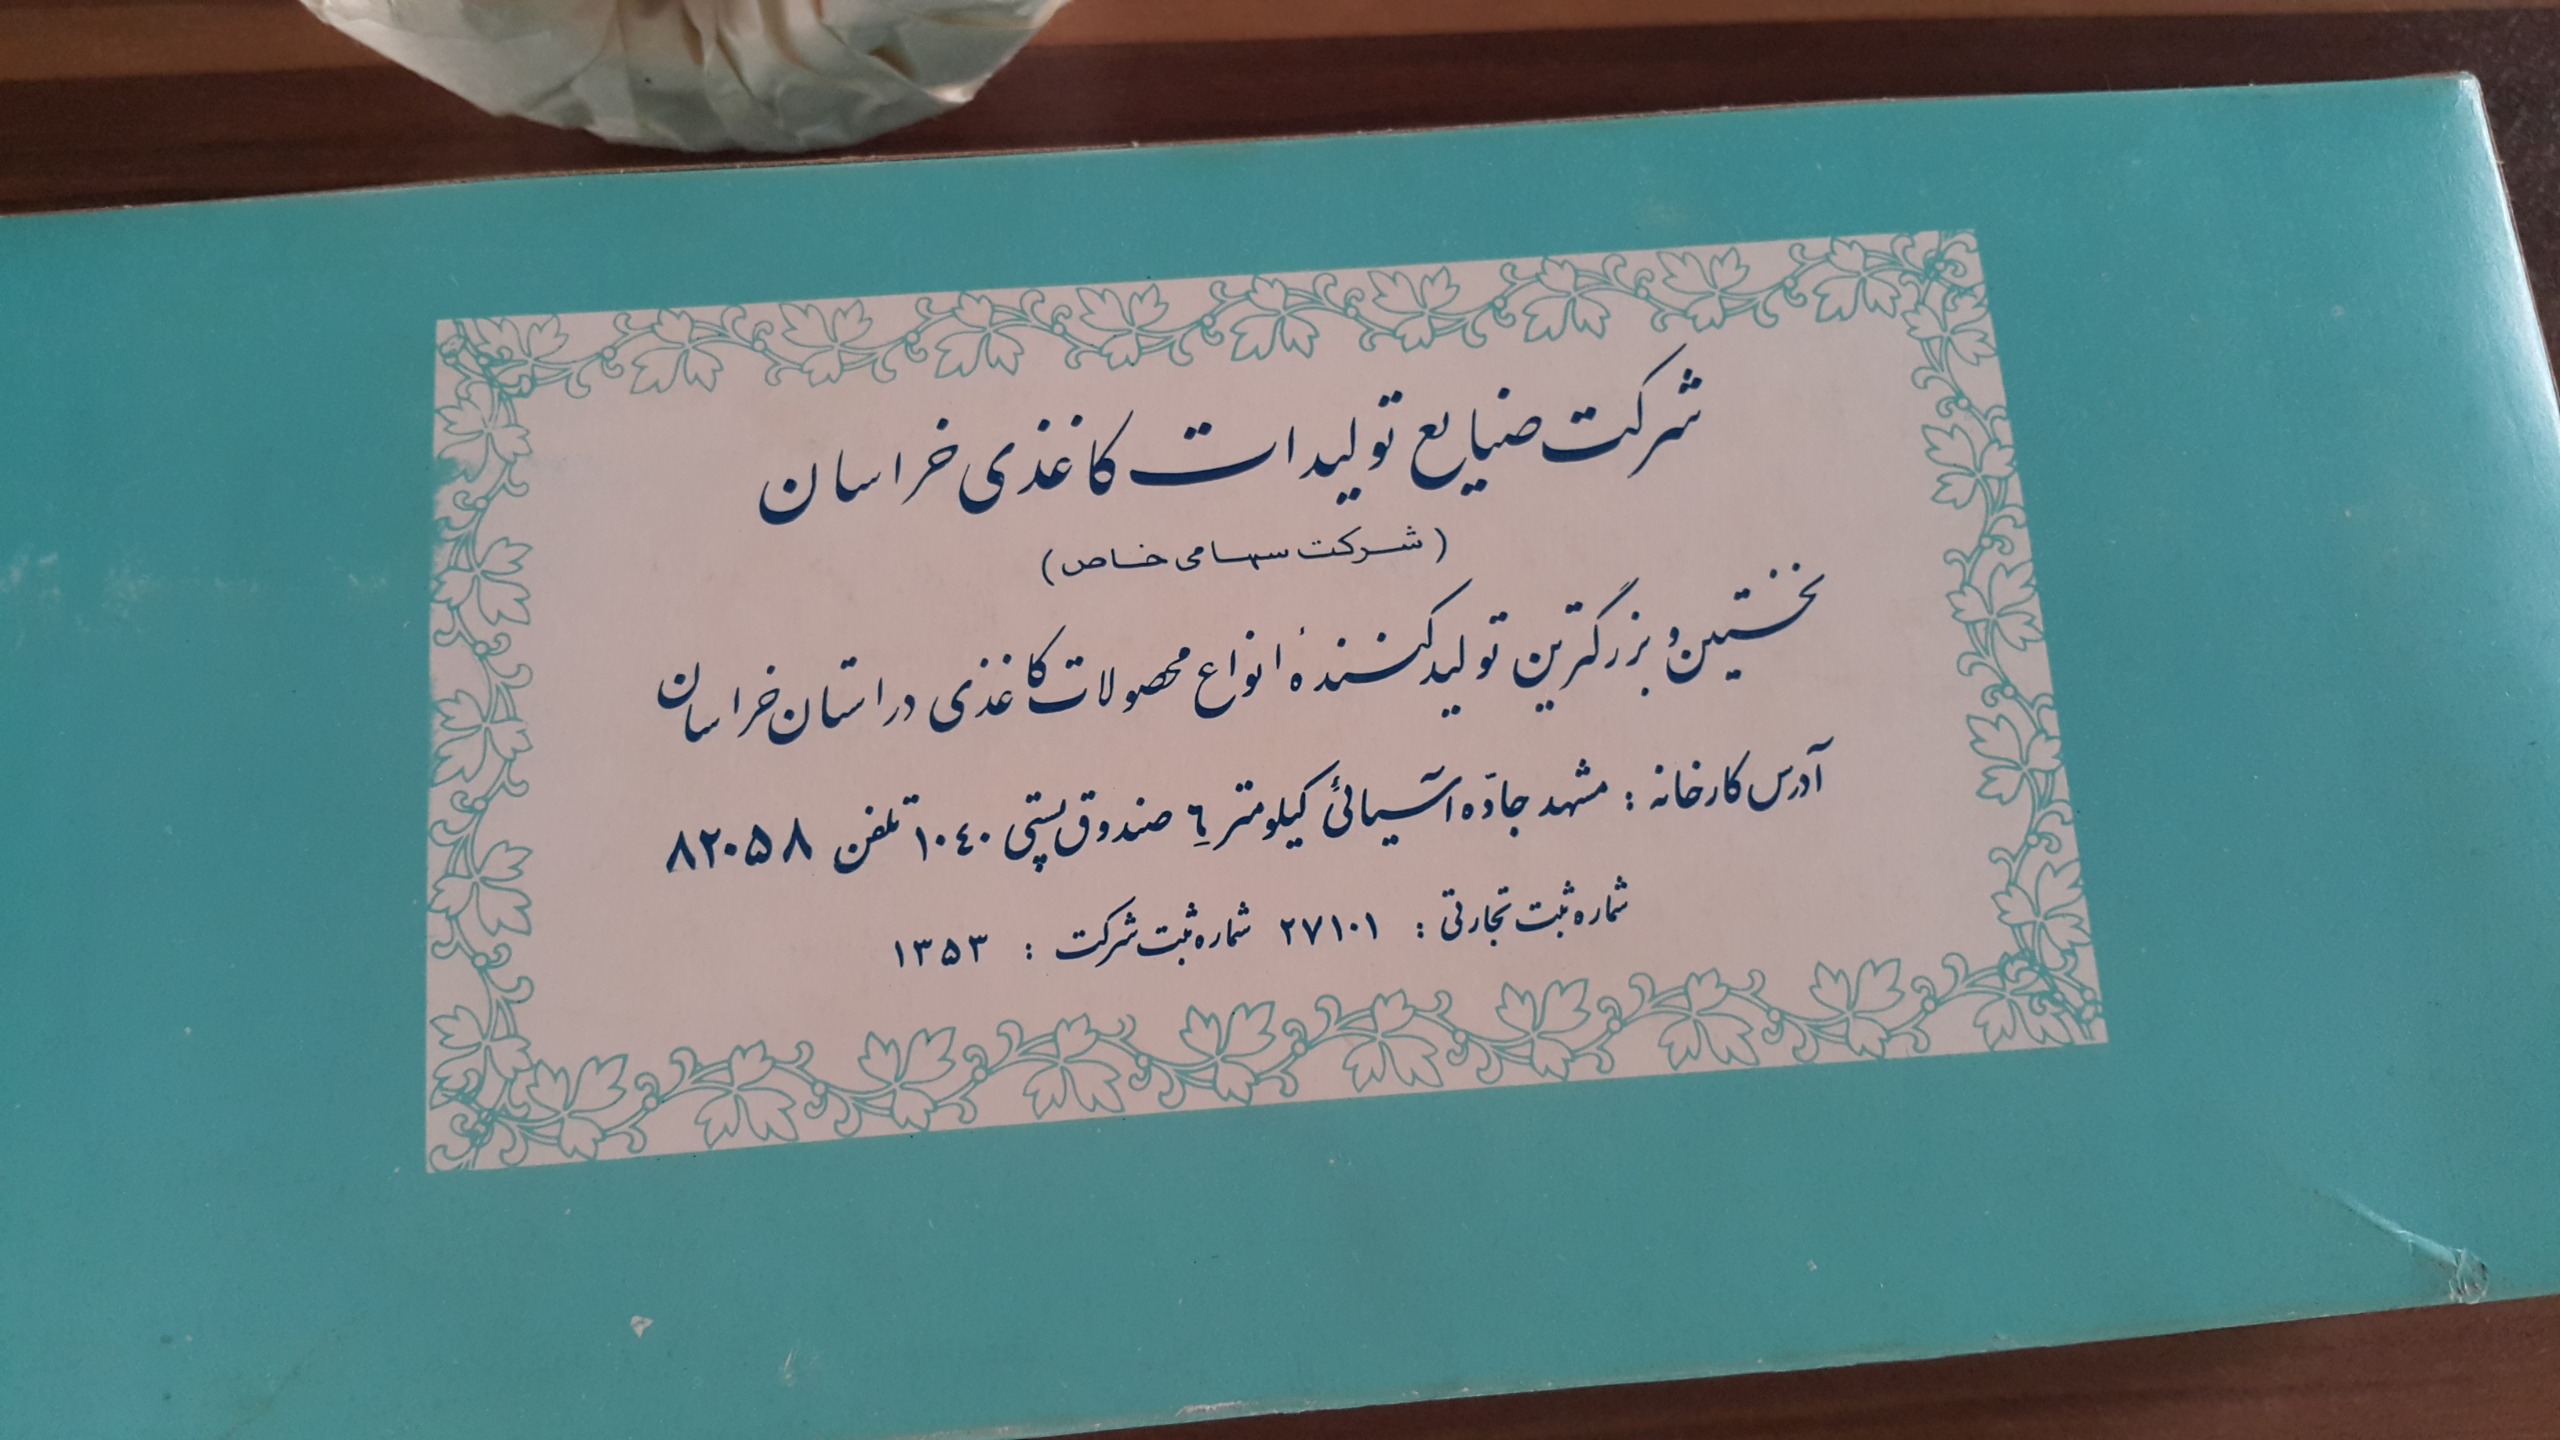 شرکت صنایع تولیدات کاغذی خراسان
(شرکت سهامی خاص)
نخستین و بزرگترین تولید کنندهٔ انواع محصولات کاغذی در استان خراسان
آدرس کارخانه : مشهد جادّه آسیائی کیلومتر ٦ صندوق پستی ۱۰٤۰ تلفن ۸۲۰۵۸
شماره ثبت تجارتی : ۲۷۱۰۱ شماره ثبت شرکت : ۱۳۵۳